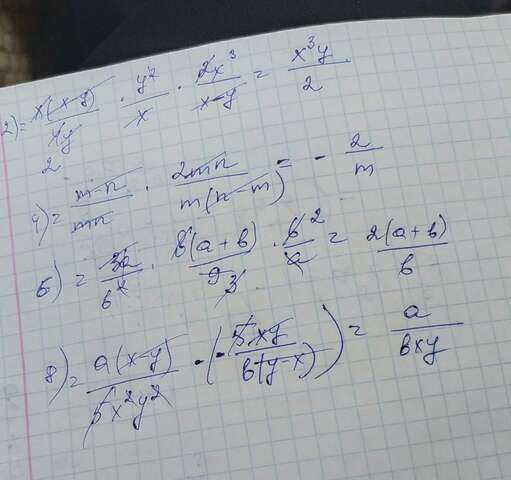 2) = x(x-y)/4y · y²/x · 2x³/x-y = x³y/2
2
4) = m-n/mn · 2mn/m(n-m) = - 2/m
6) = 3a/b² · 6(a+b)/9 3 · b²/a = 2(a+b)/b
8) = a(x-y)/5x²y² · (- 5xy/b(y-x)) = a/bxy